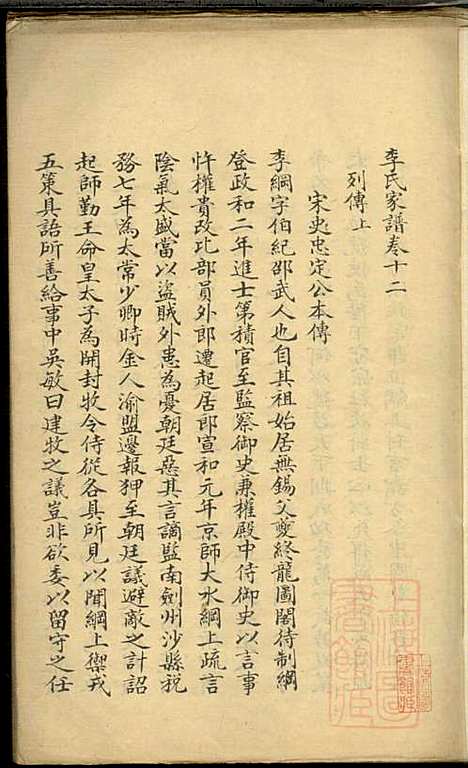 李氏家譜卷十二
列傳上
宋史忠定公本傳
李綱字伯紀邵武人也自其祖始居無錫父夔終龍圖閣待制綱
登政和二年進士第積官至監察御史兼權殿中侍御史以言事
忤權貴改比部員外郎遷起居郎宣和元年京師大水綱上疏言
陰氣太盛當以盜賊外患為憂朝廷惡其言謫監南劍州沙縣稅
務七年為太常少卿時金人渝盟邊報狎至朝廷議避敵之計詔
起師勤王命皇太子為開封牧令侍從各具所見以聞綱上禦戎
五策具語所善給事中吳敏曰建牧之議豈非欲委以留守之任